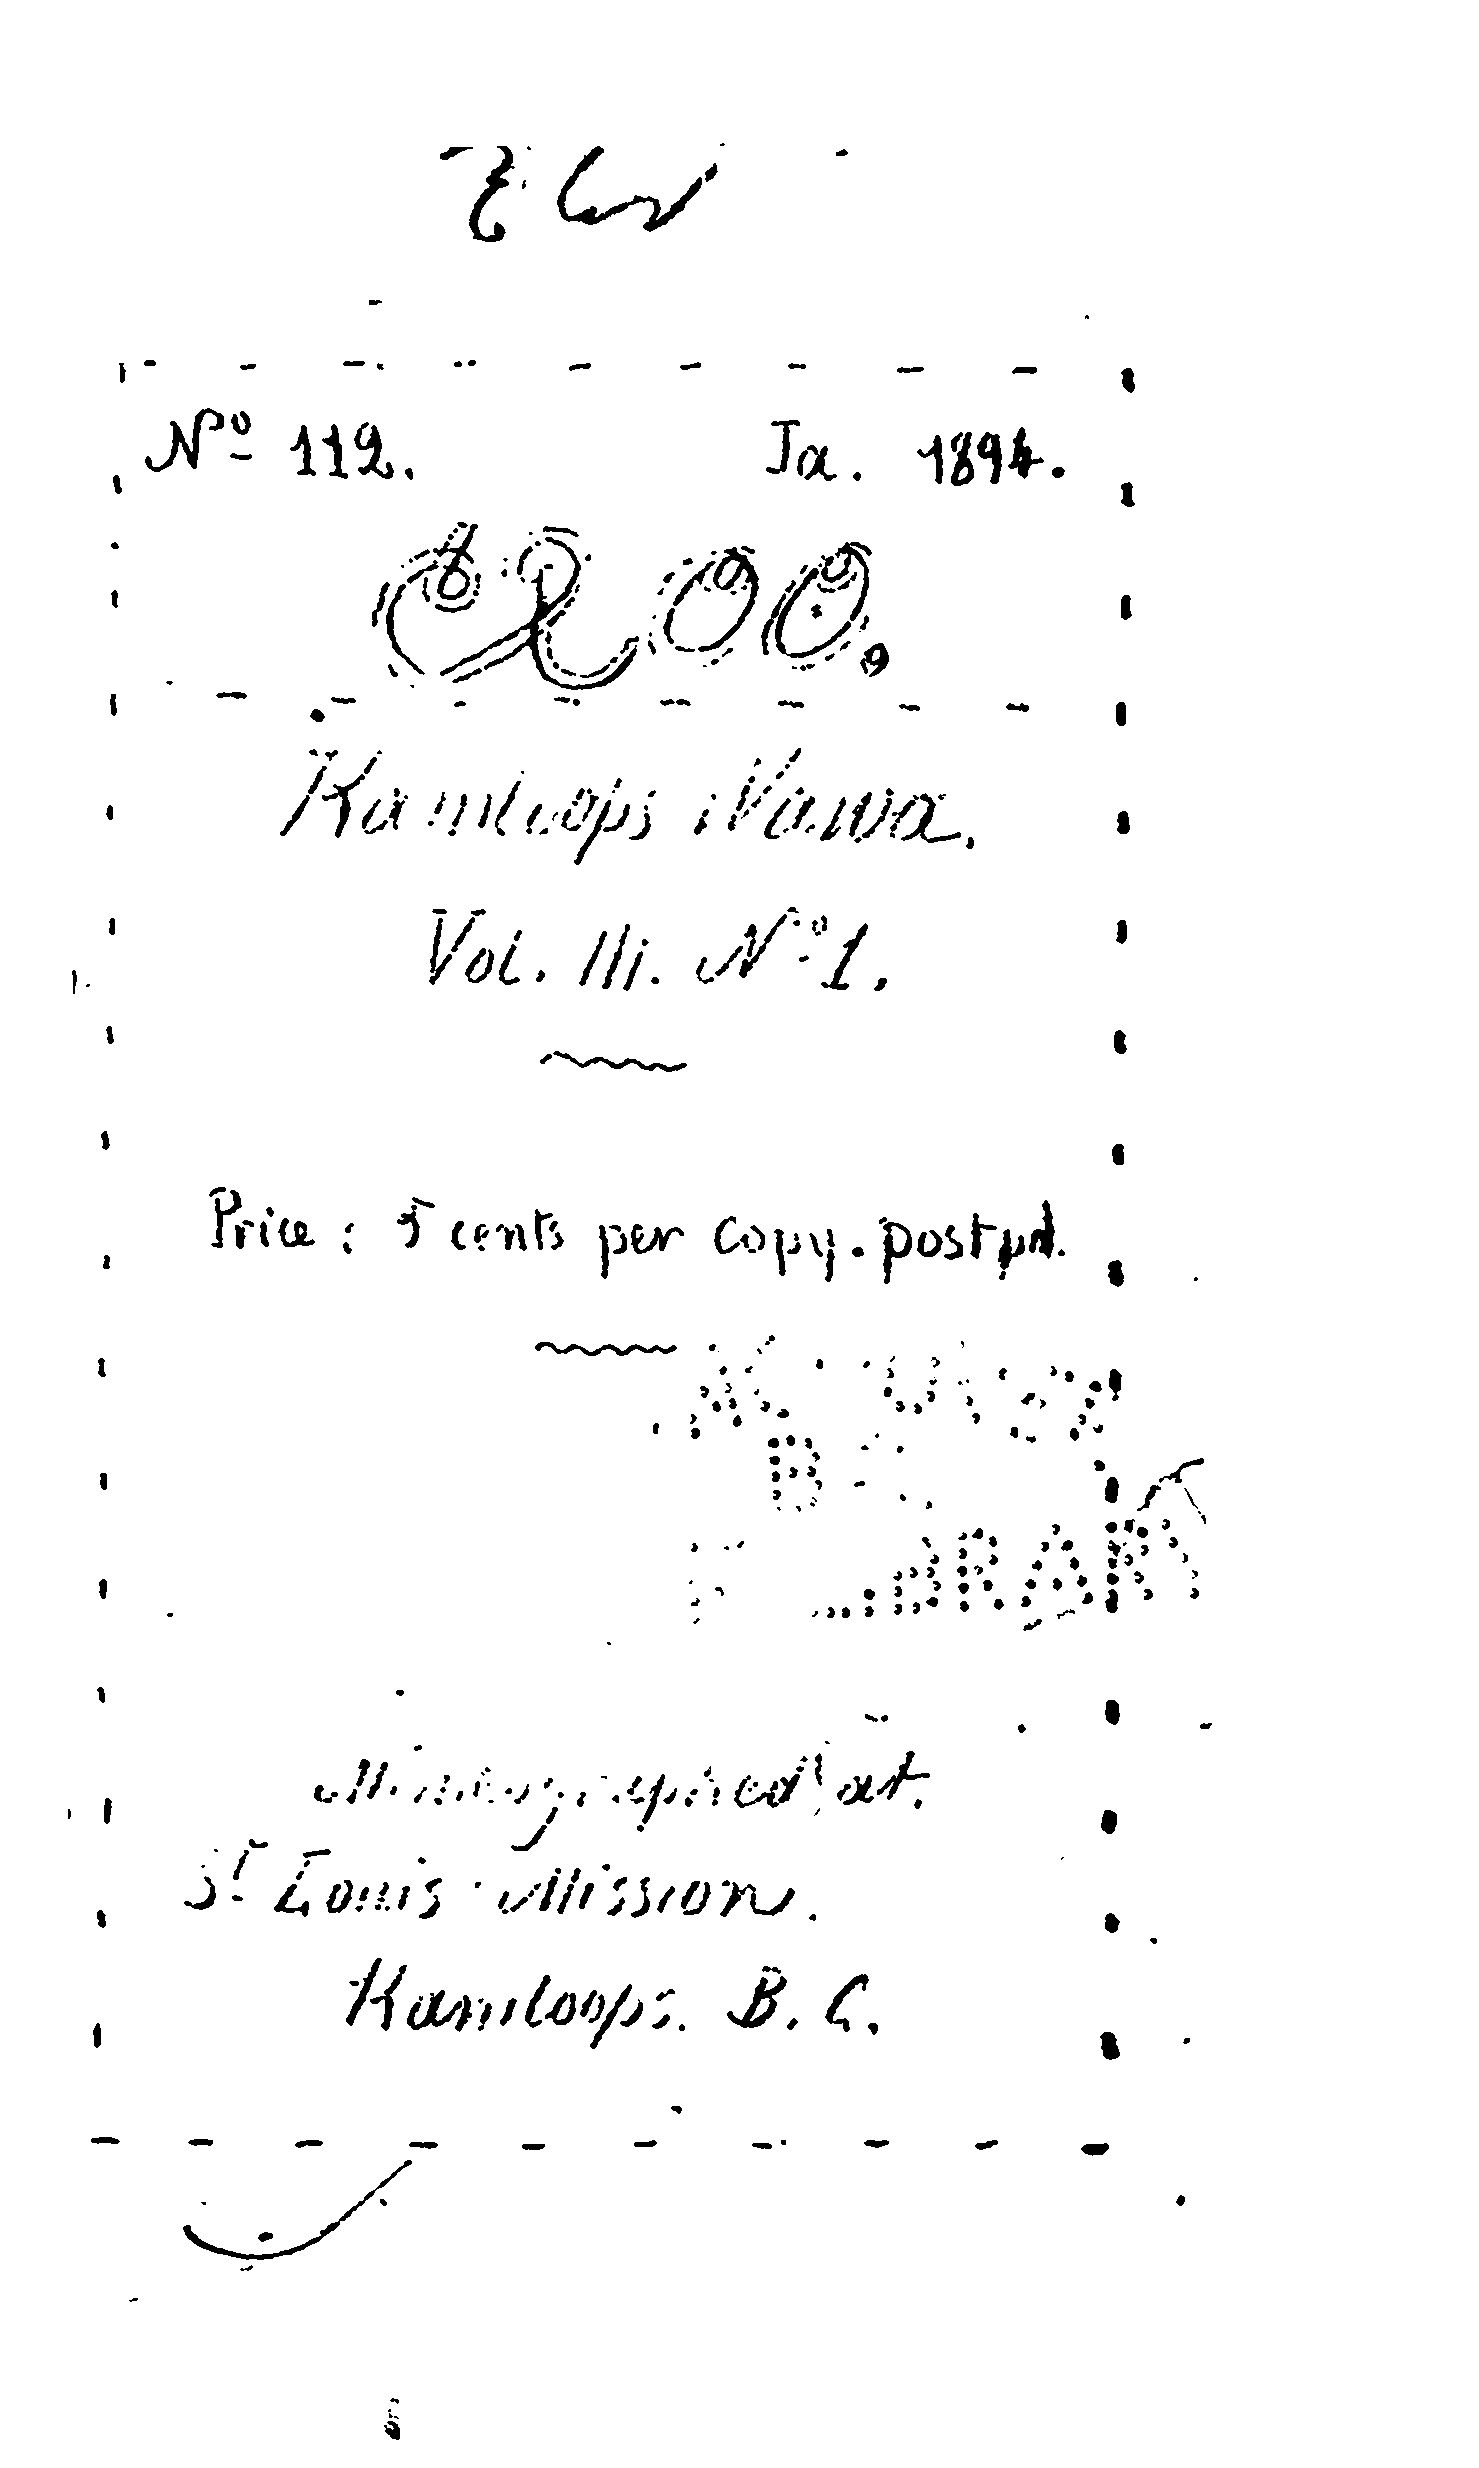 Nº 112. Ja. 1894.
Kamloops Wawa.
Vol. III. Nº 1.
Price : 5 cents per copy. postpd.
Mimeographed at.
St Louis Mission.
Kamloops. B. C.